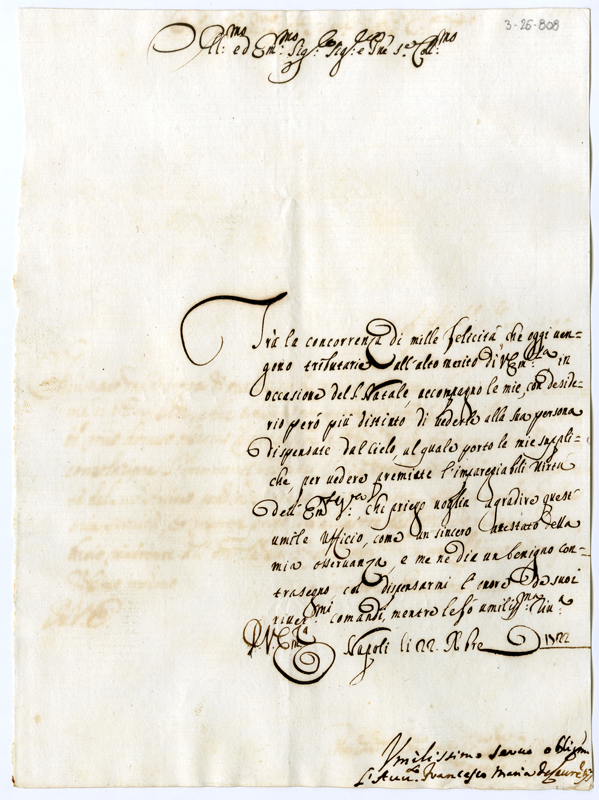 3-26-808
Ill:mo ed Em:mo Sig:re Sig:re e Pne Col:mo
Trà la concorrenza di mille felicità, che oggi uen=
gono tributarie all'alto merito di V. Em:za in
occasione del S. Natale, accompagno le mie, con deside=
rio però più distinto di uederle alla sua persona
dispensate dal Cielo, al quale porto le mie suppli=
che, per uedere premiate l'impareggiabili Virtù
dell' Em:za V:ra, che priego uoglia agradire quest'
umile Ufficio, come un sincero attestato della
mia osseruanza, e me ne dia un benigno con=
trasegno col dispensarmi l'onore de suoi
riuer:mi comandi, mentre le fò umiliss:ma riu:a
D. V. Em:za Napoli li 22. Xbre 1722
Vmilissimo seruo obligmo
L'Auu: Francesco Maria de